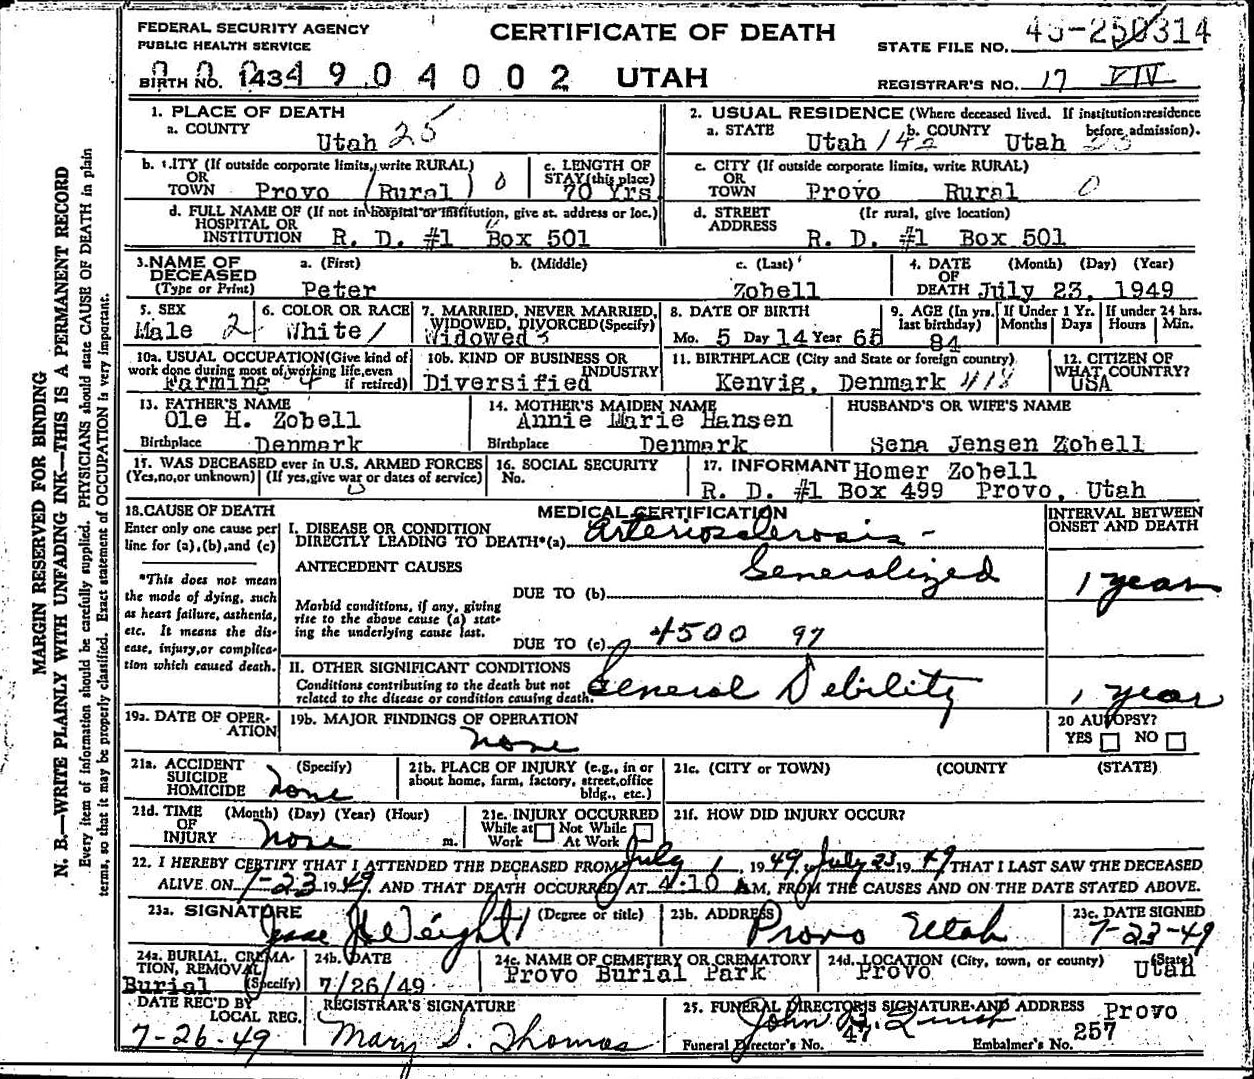 FEDERAL SECURITY AGENCY
PUBLIC HEALTH SERVICE
CERTIFICATE OF DEATH
STATE FILE NO.
BIRTH NO. 1434904002 UTAH
REGISTRAR'S NO. 17 VIV
1. PLACE OF DEATH
a. COUNTY Utah 25
2. USUAL RESIDENCE (Where deceased lived. If institution:residence before admission).
a. STATE Utah 142 b. COUNTY Utah
b. CITY (If outside corporate limits, write RURAL)
OR
TOWN Provo (Rural) 0
c. LENGTH OF STAY (this place)
70 Yrs.
c. CITY (If outside corporate limits, write RURAL)
OR
TOWN Provo Rural 0
d. FULL NAME OF (If not in hospital or institution, give st. address or loc.)
HOSPITAL OR
INSTITUTION R. D. #1 Box 501
d. STREET (If rural, give location)
ADDRESS R. D. #1 Box 501
3. NAME OF DECEASED
(Type or Print)
a. (First) Peter
b. (Middle)
c. (Last) Zobell
4. DATE OF DEATH (Month) (Day) (Year)
July 23, 1949
5. SEX
Male 2
6. COLOR OR RACE
White 1
7. MARRIED, NEVER MARRIED, WIDOWED, DIVORCED (Specify)
Widowed 3
8. DATE OF BIRTH
Mo. 5 Day 14 Year 65
9. AGE (In yrs. last birthday)
84
If Under 1 Yr.
Months Days
If under 24 hrs.
Hours Min.
10a. USUAL OCCUPATION (Give kind of work done during most of working life, even if retired)
Farming 4
10b. KIND OF BUSINESS OR INDUSTRY
Diversified
11. BIRTHPLACE (City and State or foreign country)
Kenvig, Denmark 418
12. CITIZEN OF WHAT COUNTRY?
USA
13. FATHER'S NAME
Ole H. Zobell
Birthplace Denmark
14. MOTHER'S MAIDEN NAME
Annie Marie Hansen
Birthplace Denmark
HUSBAND'S OR WIFE'S NAME
Sena Jensen Zobell
15. WAS DECEASED ever in U.S. ARMED FORCES
(Yes, no, or unknown) (If yes, give war or dates of service)
0
16. SOCIAL SECURITY
No.
17. INFORMANT Homer Zobell
R. D. #1 Box 499 Provo, Utah
18. CAUSE OF DEATH
Enter only one cause per line for (a), (b), and (c)
*This does not mean the mode of dying, such as heart failure, asthenia, etc. It means the disease, injury, or complication which caused death.
MEDICAL CERTIFICATION
INTERVAL BETWEEN ONSET AND DEATH
I. DISEASE OR CONDITION
DIRECTLY LEADING TO DEATH*(a) Arteriosclerosis -
ANTECEDENT CAUSES
Generalized 1 year
DUE TO (b)
Morbid conditions, if any, giving rise to the above cause (a) stating the underlying cause last.
DUE TO (c) 4500 97
II. OTHER SIGNIFICANT CONDITIONS
Conditions contributing to the death but not related to the disease or condition causing death.
General Debility 1 year
19a. DATE OF OPERATION
19b. MAJOR FINDINGS OF OPERATION
none
20 AUTOPSY?
YES NO
21a. ACCIDENT
SUICIDE
HOMICIDE
(Specify)
none
21b. PLACE OF INJURY (e.g., in or about home, farm, factory, street, office bldg., etc.)
21c. (CITY or TOWN) (COUNTY) (STATE)
21d. TIME OF INJURY (Month) (Day) (Year) (Hour)
none m.
21e. INJURY OCCURRED
While at Work Not While At Work
21f. HOW DID INJURY OCCUR?
22. I HEREBY CERTIFY THAT I ATTENDED THE DECEASED FROM July 1, 1949, July 23 1949 THAT I LAST SAW THE DECEASED
ALIVE ON 7-23 1949 AND THAT DEATH OCCURRED AT 4:10 A M, FROM THE CAUSES AND ON THE DATE STATED ABOVE.
23a. SIGNATURE (Degree or title)
Jesse J Weight
23b. ADDRESS
Provo Utah
23c. DATE SIGNED
7-23-49
24a. BURIAL, CREMATION, REMOVAL (Specify)
Burial
24b. DATE
7/26/49
24c. NAME OF CEMETERY OR CREMATORY
Provo Burial Park
24d. LOCATION (City, town, or county) (State)
Provo Utah
DATE REC'D BY LOCAL REG.
7-26-49
REGISTRAR'S SIGNATURE
Mary S. Thomas
25. FUNERAL DIRECTOR'S SIGNATURE AND ADDRESS Provo
John
Funeral Director's No. 47
Embalmer's No. 257
MARGIN RESERVED FOR BINDING
N. B.—WRITE PLAINLY WITH UNFADING INK—THIS IS A PERMANENT RECORD
Every item of information should be carefully supplied. PHYSICIANS should state CAUSE OF DEATH in plain
terms, so that it may be properly classified. Exact statement of OCCUPATION is very important.